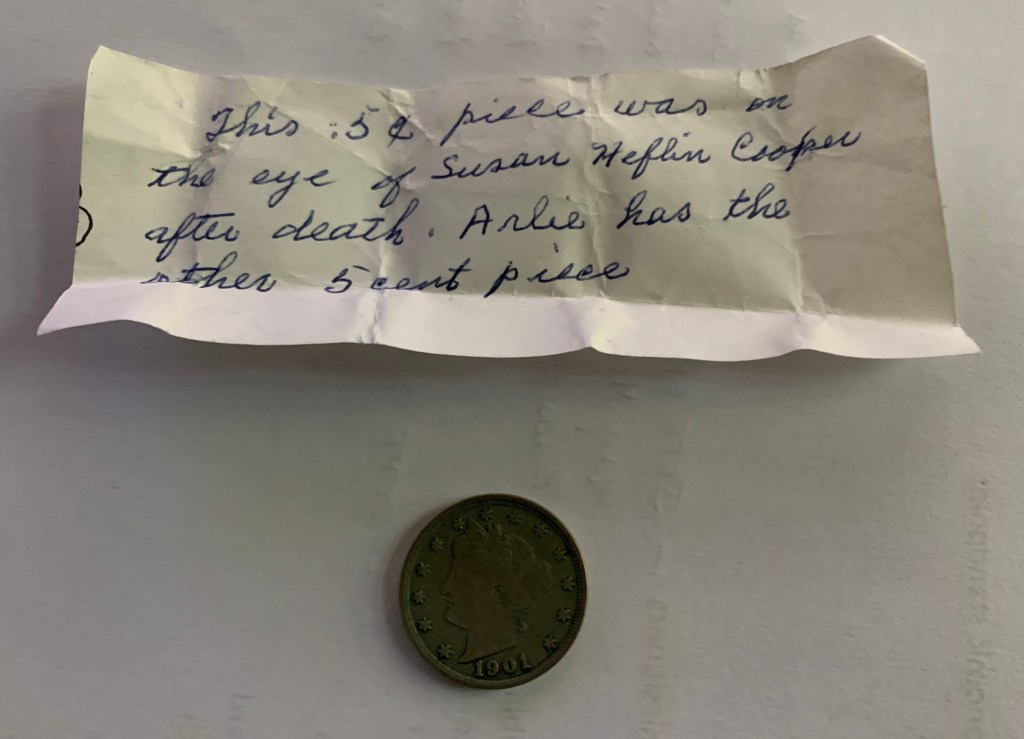 This 5¢ piece was on
the eye of Susan Heflin Cooper
after death. Arlie has the
other 5 cent piece
1901